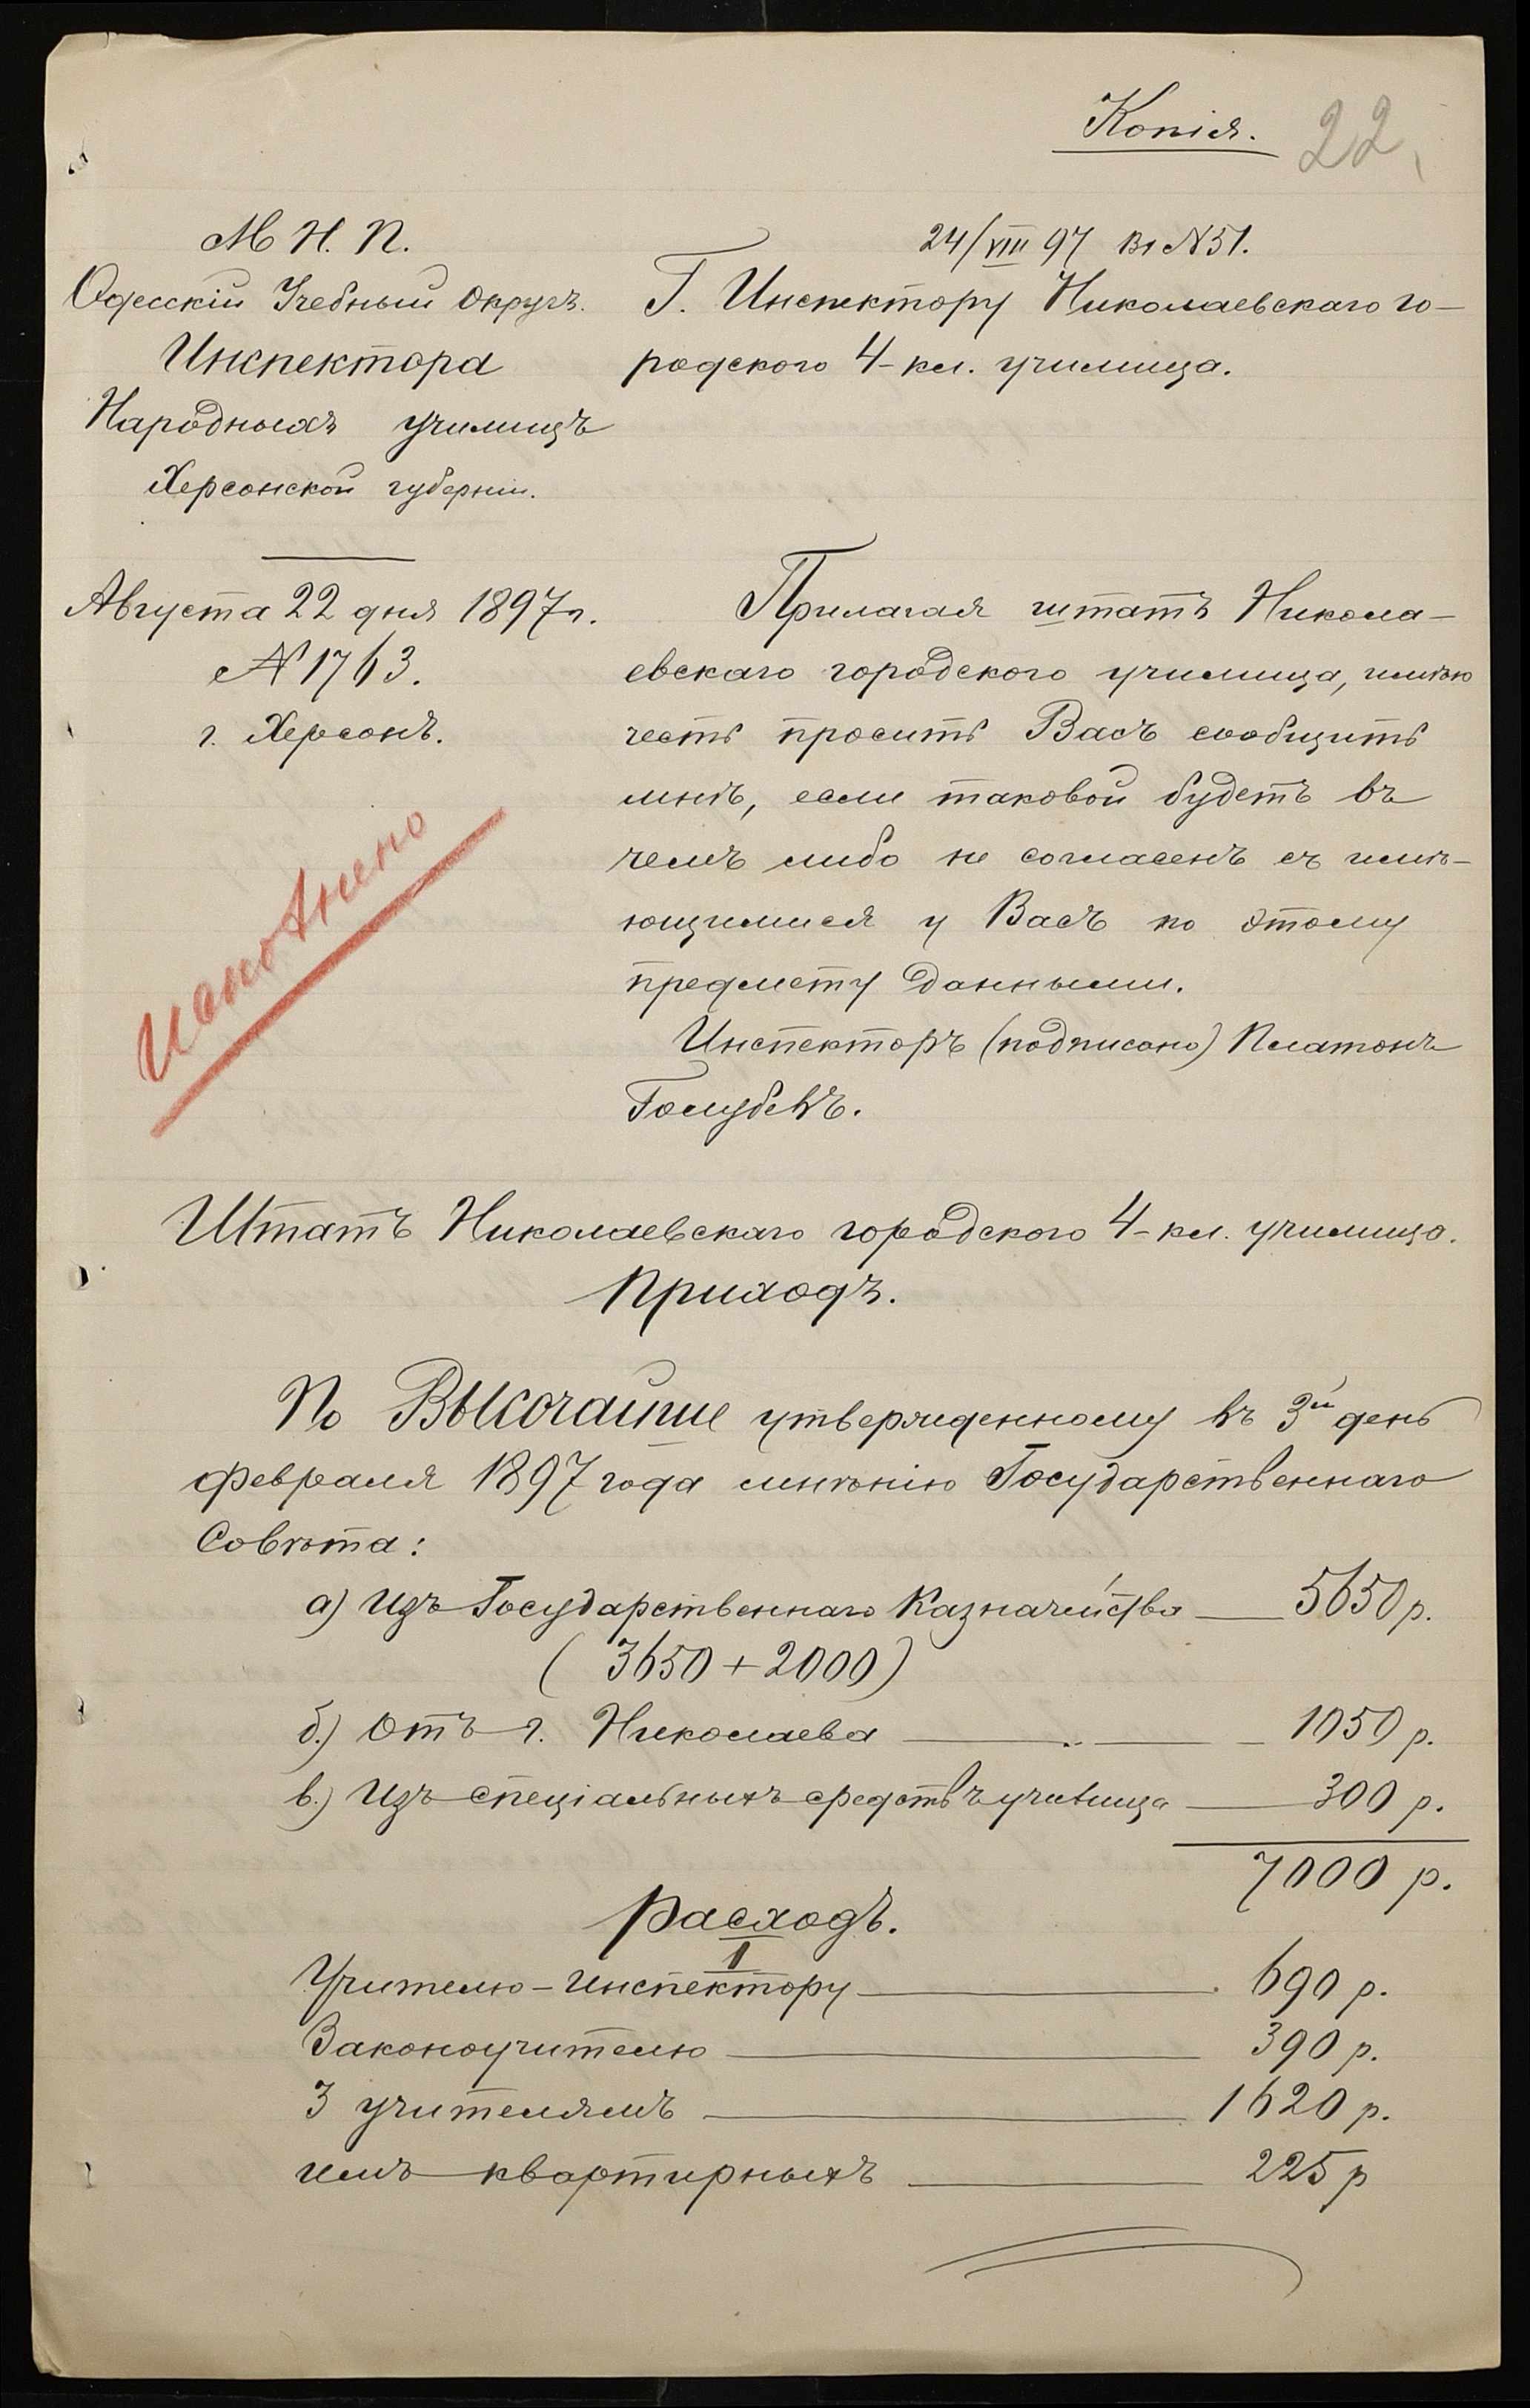 Копія.
22
М Н. П.
Одесскій Учебный Округъ.
Инспектора
Народныхъ училищъ
Херсонской губерніи.
Августа 22 дня 1897 г.
№ 1763.
г. Херсонъ.
исполнено
24/VIII 97 Вх №51.
Г. Инспектору Николаевскаго го-
родского 4-кл. училища.
Прилагая штатъ Никола-
евскаго городского училища, имѣю
честь просить Васъ сообщить
мнѣ, если таковой будетъ въ
чемъ либо не согласенъ съ имѣ-
ющимися у Васъ по этому
предмету данными.
Инспекторъ (подписано) Платонъ
Голубевъ.
Штатъ Николаевскаго городского 4-кл. училища.
Приходъ.
По Высочайше утвержденному въ 3й день
февраля 1897 года мнѣнію Государственнаго
Совѣта:
а) Изъ Государственнаго Казначейства — 5650 р.
(3650 + 2000)
б.) Отъ г. Николаева — 1050 р.
в.) Изъ спеціальныхъ средствъ училища — 300 р.
7000 р.
Расходъ.
I
Учителю-Инспектору — 690 р.
Законоучителю — 390 р.
3 учителямъ — 1620 р.
имъ квартирныхъ — 225 р